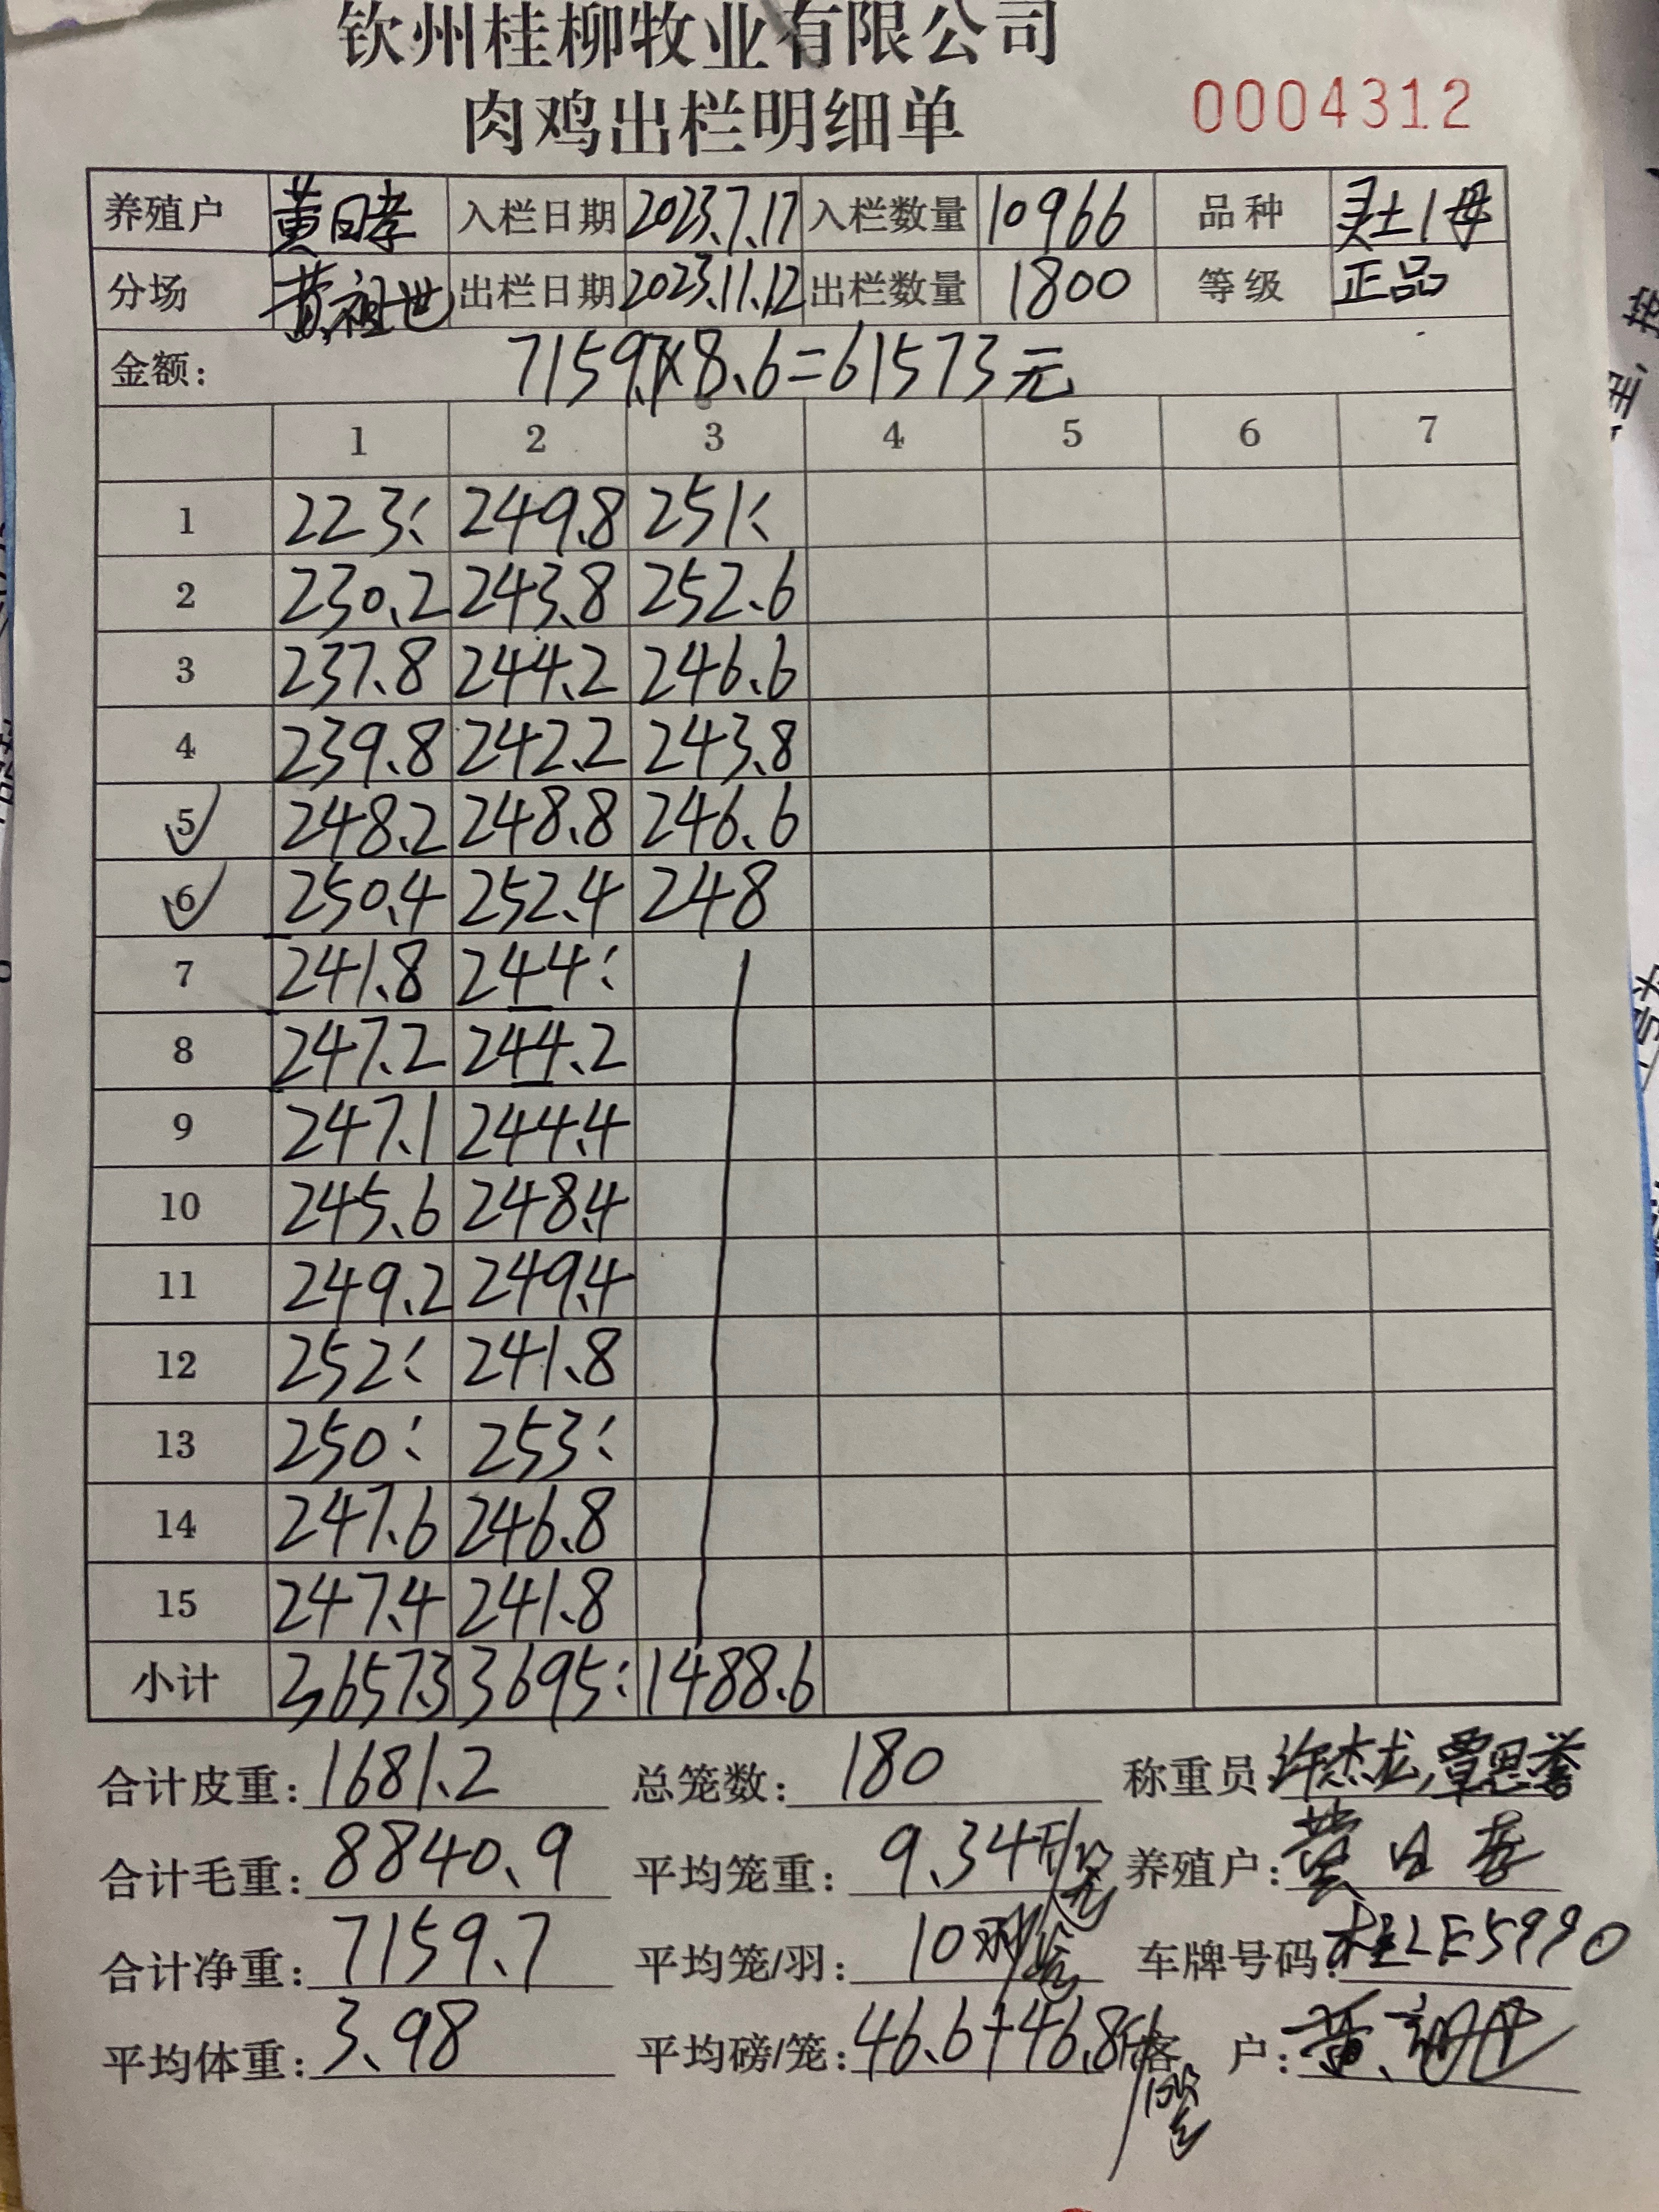 钦州桂柳牧业有限公司
肉鸡出栏明细单 0004312
养殖户 黄日孝 入栏日期 2023.7.17 入栏数量 10966 品种 灵土1母
分场 黄祖世 出栏日期 2023.11.12 出栏数量 1800 等级 正品
金额: 7159.7×8.6=61573元
1 2 3 4 5 6 7
1 223: 249.8 251:
2 230.2 243.8 252.6
3 237.8 244.2 246.6
4 239.8 242.2 243.8
5 248.2 248.8 246.6
6 250.4 252.4 248
7 241.8 244:
8 247.2 244.2
9 247.1 244.4
10 245.6 248.4
11 249.2 249.4
12 252: 241.8
13 250: 253:
14 247.6 246.8
15 247.4 241.8
小计 3657.3 3695: 1488.6
合计皮重: 1681.2 总笼数: 180 称重员 许杰龙,覃思誉
合计毛重: 8840.9 平均笼重: 9.34斤/笼 养殖户: 黄日孝
合计净重: 7159.7 平均笼/羽: 10羽/笼 车牌号码: 桂LE5990
平均体重: 3.98 平均磅/笼: 46.6+46.8斤 客户: